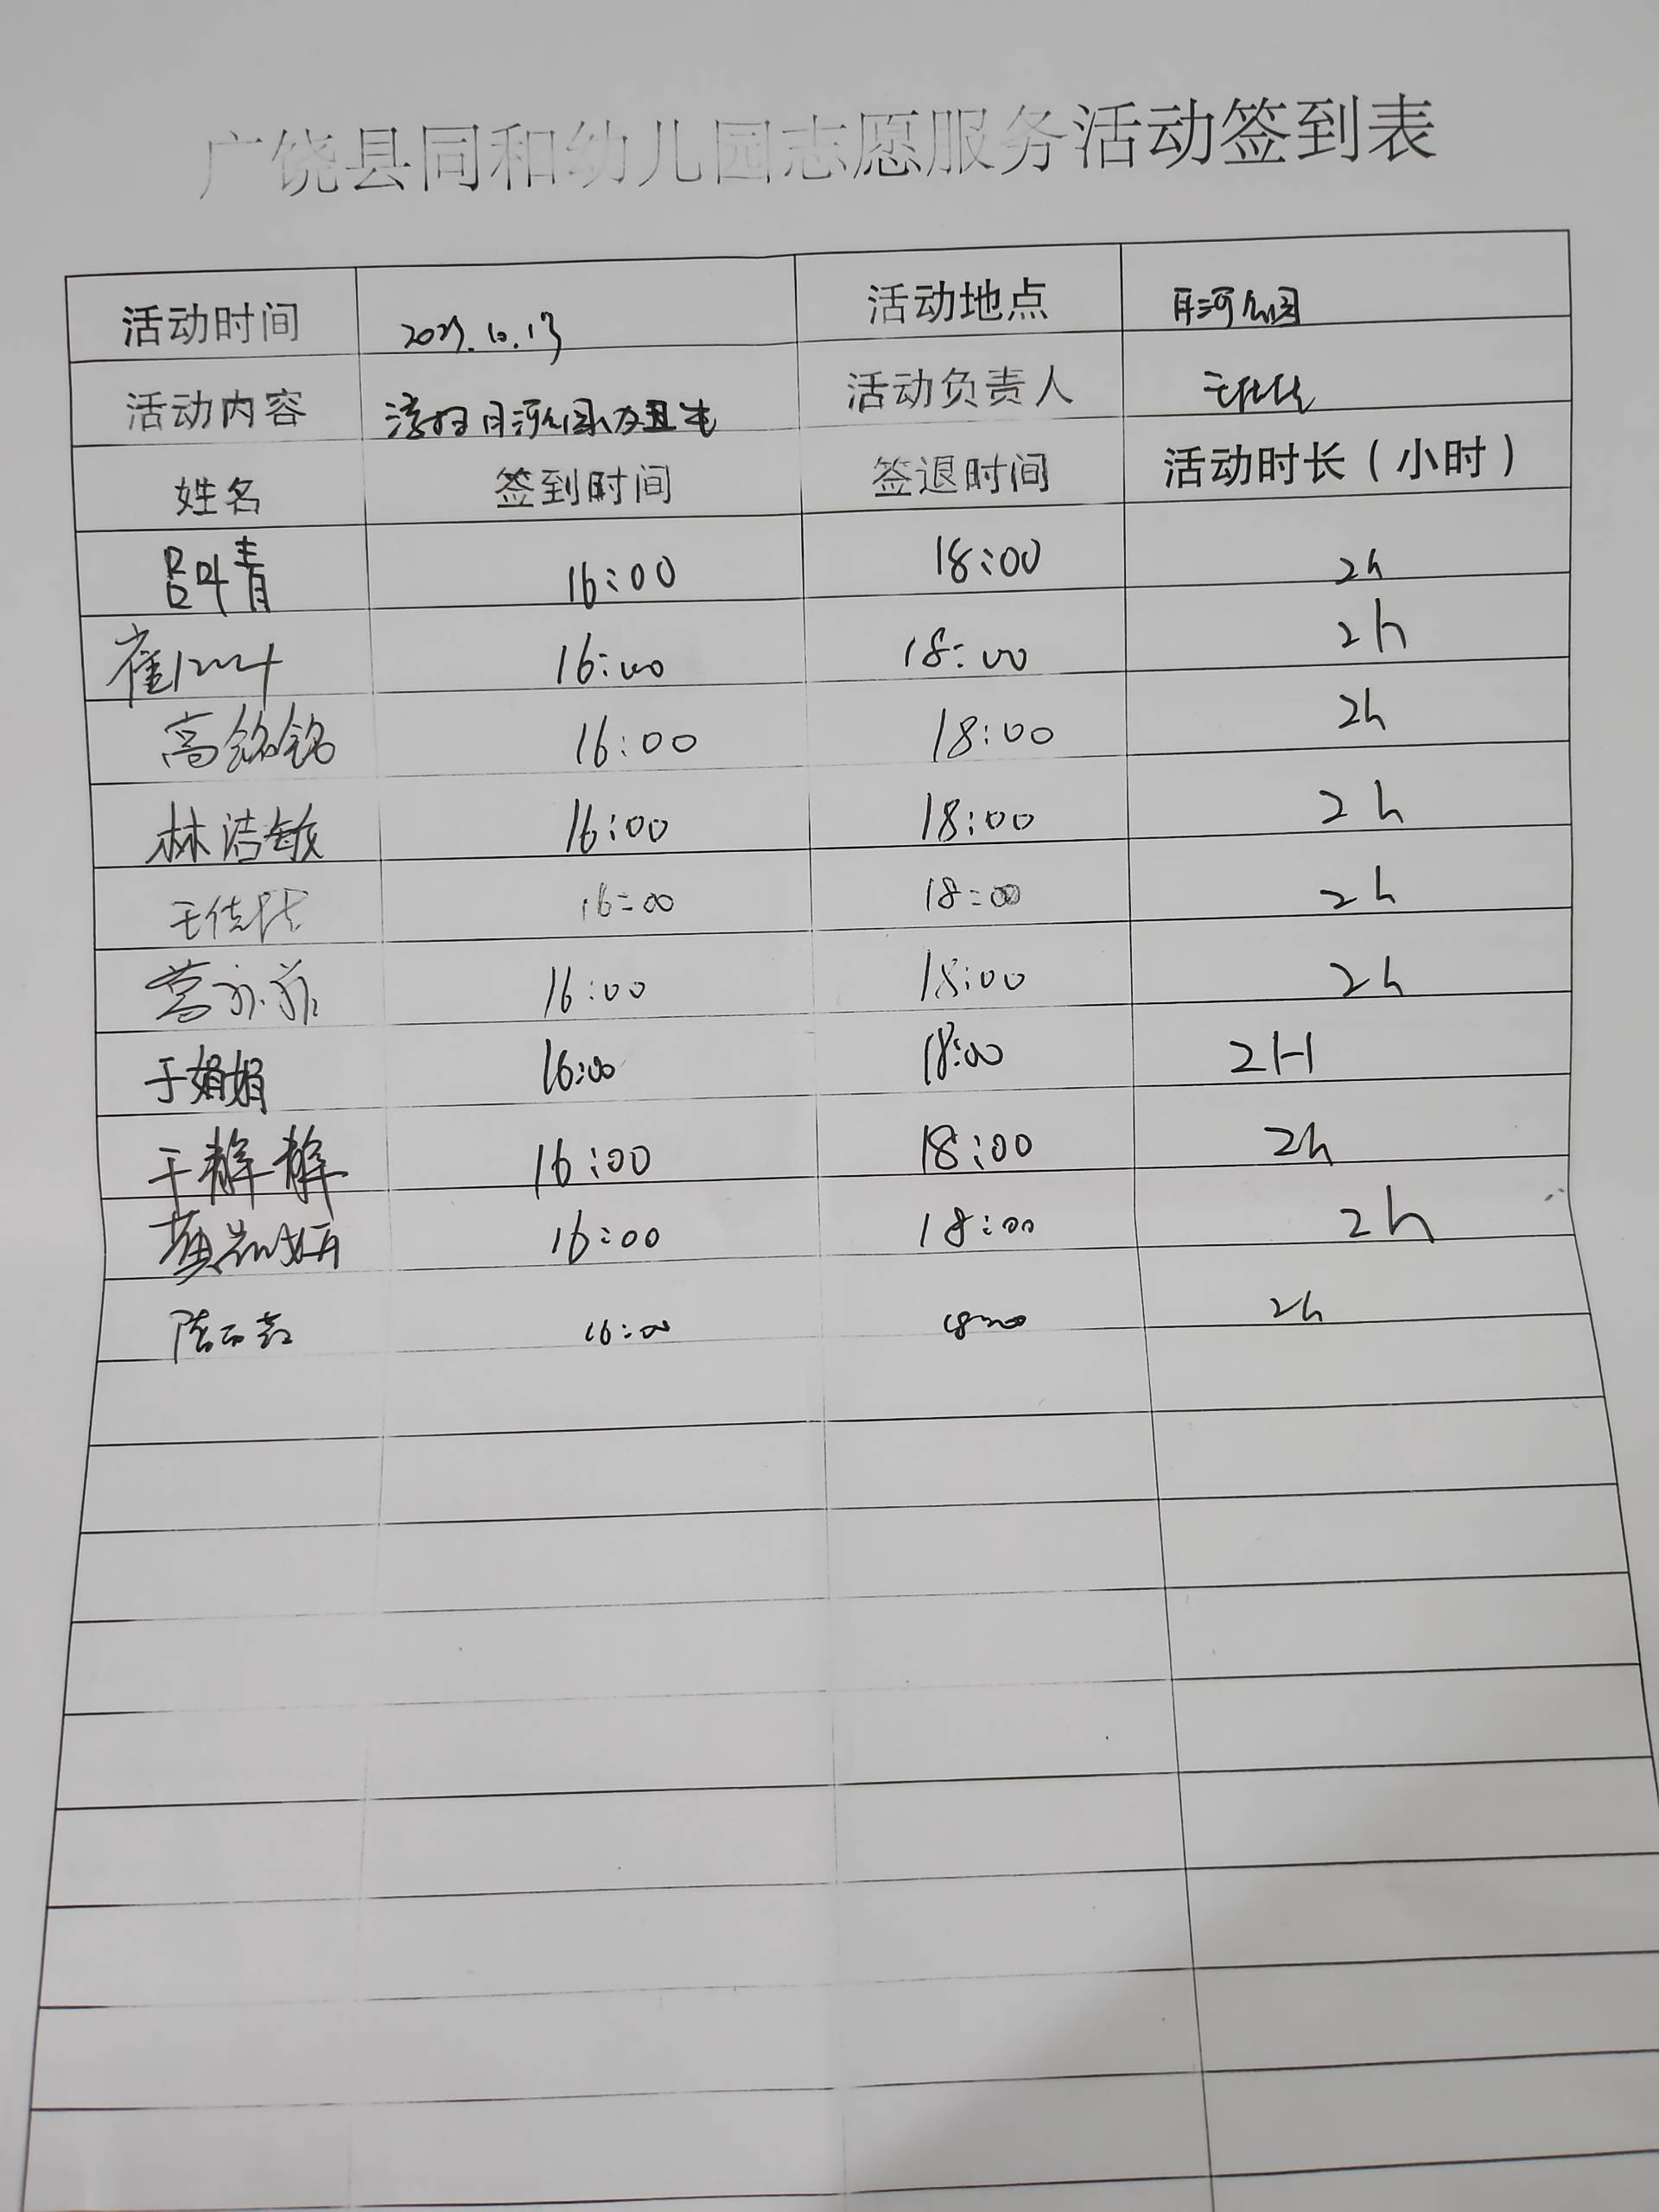 广饶县同和幼儿园志愿服务活动签到表
活动时间 活动地点 月河公园
活动内容 清扫月河公园及卫生 活动负责人
姓名 签到时间 签退时间 活动时长（小时）
吕叶青 16:00 18:00 2h
崔 16:00 18:00 2h
高铭铭 16:00 18:00 2h
林洁敏 16:00 18:00 2h
王佳 16:00 18:00 2h
葛 16:00 18:00 2h
于娟娟 16:00 18:00 2H
于静静 16:00 18:00 2h
黄 16:00 18:00 2h
陈 16:00 18:00 2h